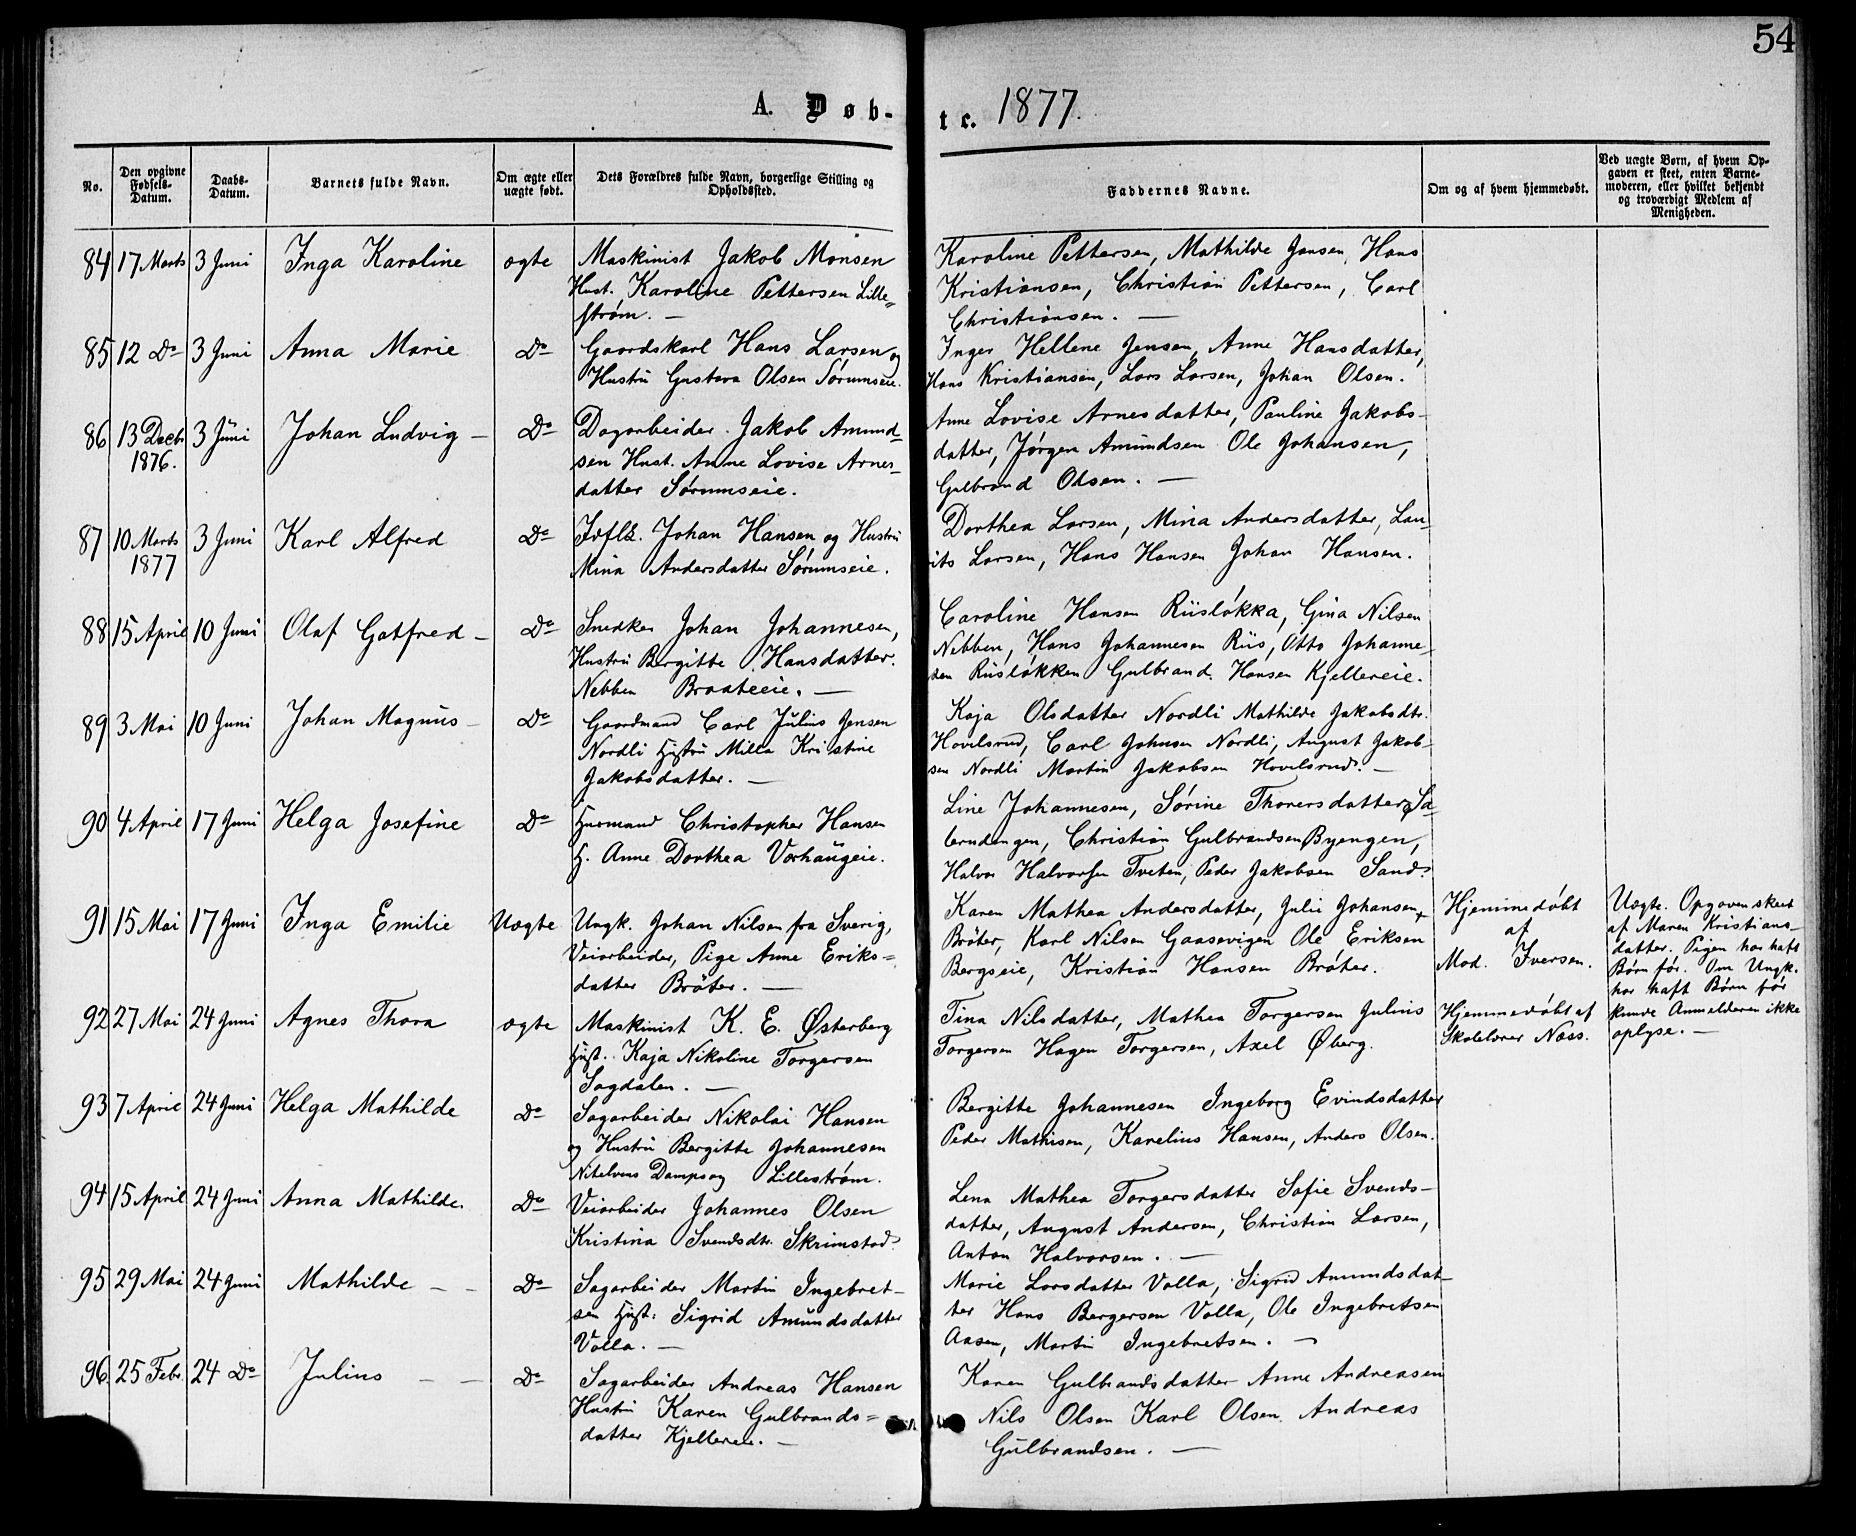 54
A. Døb-
te. 1877.
No.
Den opgivne Fødsels-Datum.
Daabs-Datum.
Barnets fulde Navn.
Om ægte eller uægte født.
Dets Forældres fulde Navn, borgerlige Stilling og Opholdssted.
Faddernes Navne.
Om og af hvem hjemmedøbt.
Ved uægte Børn, af hvem Op-
gaven er skeet, enten Barne-
moderen, eller hvilket bekjendt
og troværdigt Medlem af
Menigheden.
84 17 Marts 3 Juni Inga Karoline ægte Maskinist Jakob Monsen
Hust. Karoline Pettersen Lille=
strøm. —
Karoline Pettersen, Mathilde Jansen, Hans
Kristiansen, Christian Pettersen, Carl
Christiansen. —
85 12 Do 3 Juni Anna Marie Do Gaardskarl Hans Larsen og
Hustru Gustava Olsen Sørumseie.
Inger Hellene Jensen, Anne Hansdatter,
Hans Kristiansen, Lars Larsen, Johan Olsen.
86 13 Decbr 1876. 3 Juni Johan Ludvig — Do Dagarbeider Jakob Amund-
sen Hust. Anne Lovise Arnes-
datter Sørumseie.
Anne Lovise Arnesdatter, Pauline Jakobs-
datter, Jørgen Amundsen Ole Johansen,
Gulbrand Olsen. —
87 10 Marts 1877 3 Juni Karl Alfred Do Johan Hansen og Hustru
Mina Andersdatter Sørumseie.
Dorthea Larsen, Mina Andersdatter, Lau-
rits Larsen, Hans Hansen Johan Hansen.
88 15 April 10 Juni Olaf Gotfred — Do Snedker Johan Johannesen,
Hustru Bergitte Hansdatter.
Nebben Braateeie. —
Caroline Hansen Riisløkka, Gina Nilsen
Nebben, Hans Johannesen Riis, Otto Johanne-
sen Riisløkken Gulbrand Hansen Kjellereie.
89 3 Mai 10 Juni Johan Magnus — Do Gaardmand Carl Julius Jensen
Nordli Hustru Milla Kristine
Jakobsdatter. —
Kaja Olsdatter Nordli Mathilde Jakobsdtr.
Hovelsrud, Carl Johnsen Nordli, August Jakob-
sen Nordli Martin Jakobsen Hovelsrud. —
90 4 April 17 Juni Helga Josefine Do Husmand Christopher Hansen
H. Anne Dorthea Vorhaugeie.
Line Johannesen, Sørine Thorersdatter
Christian Gulbrandsen Byengen,
Halvor Halvorsen Tveten, Peder Jakobsen Sand.
91 15 Mai 17 Juni Inga Emilie Uægte Ungk. Johan Nilsen fra Sverig,
Veiarbeider, Pige Anne Eriks=
datter Brøter. —
Karen Mathea Andersdatter, Julie Johansen
Brøter, Karl Nilsen Gaasevigen Ole Eriksen
Bergseie, Kristian Hansen Brøter.
Hjemmedøbt
af
Mad. Iversen.
Uægte. Opgaven skeet
af Maren Kristians-
datter. Pigen har haft
Børn før. Om Ungk.
har haft Børn før
kunde Anmelderen ikke
oplyse. —
92 27 Mai 24 Juni Agnes Thora ægte Maskinist K. E. Østerberg
Hust. Kaja Nikoline Torgersen
Sagdalen. —
Tina Nilsdatter, Mathea Torgersen Julius
Torgersen Hagen Torgersen, Axel Øberg.
Hjemmedøbt af
Skolelærer Næss.
93 7 April 24 Juni Helga Mathilde Do Sagarbeider Nikolai Hansen
og Hustru Bergitte Johannesen
Nitelvens Dampsag Lillestrøm.
Bergitte Johannesen Ingeborg Evindsdatter
Peder Mathisen, Karelius Hansen, Anders Olsen.
94 15 April 24 Juni Anna Mathilde. Do Veiarbeider Johannes Olsen
Kristina Svendsdtr. Skrimstad.
Lena Mathea Torgersdatter Sofie Svends-
datter, August Andersen, Christian Larsen,
Anton Halvorsen. —
95 29 Mai 24 Juni Mathilde — — Do Sagarbeider Martin Ingebret-
sen Hust: Sigrid Amundsdatter
Volla. —
Marie Larsdatter Volla, Sigrid Amundsdat-
ter Hans Bergersen Volla, Ole Ingebretsen
Aasen, Martin Ingebretsen. —
96. 25 Febr. 24 Do Julius — — Do Sagarbeider Andreas Hansen
Hustru Karen Gulbrands=
datter Kjellereie. —
Karen Gulbrandsdatter Anne Andreasen
Nils Olsen Karl Olsen Andreas
Gulbrandsen. —